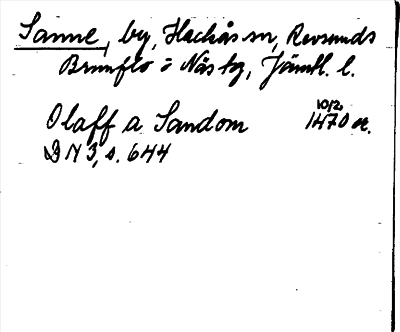 Sanne, by, Hackås sn, Revsunds
Brunflo o Näs tg, Jämtl. l.
Olaff a Sandom 10/2 1470 or.
DN 3, s. 644